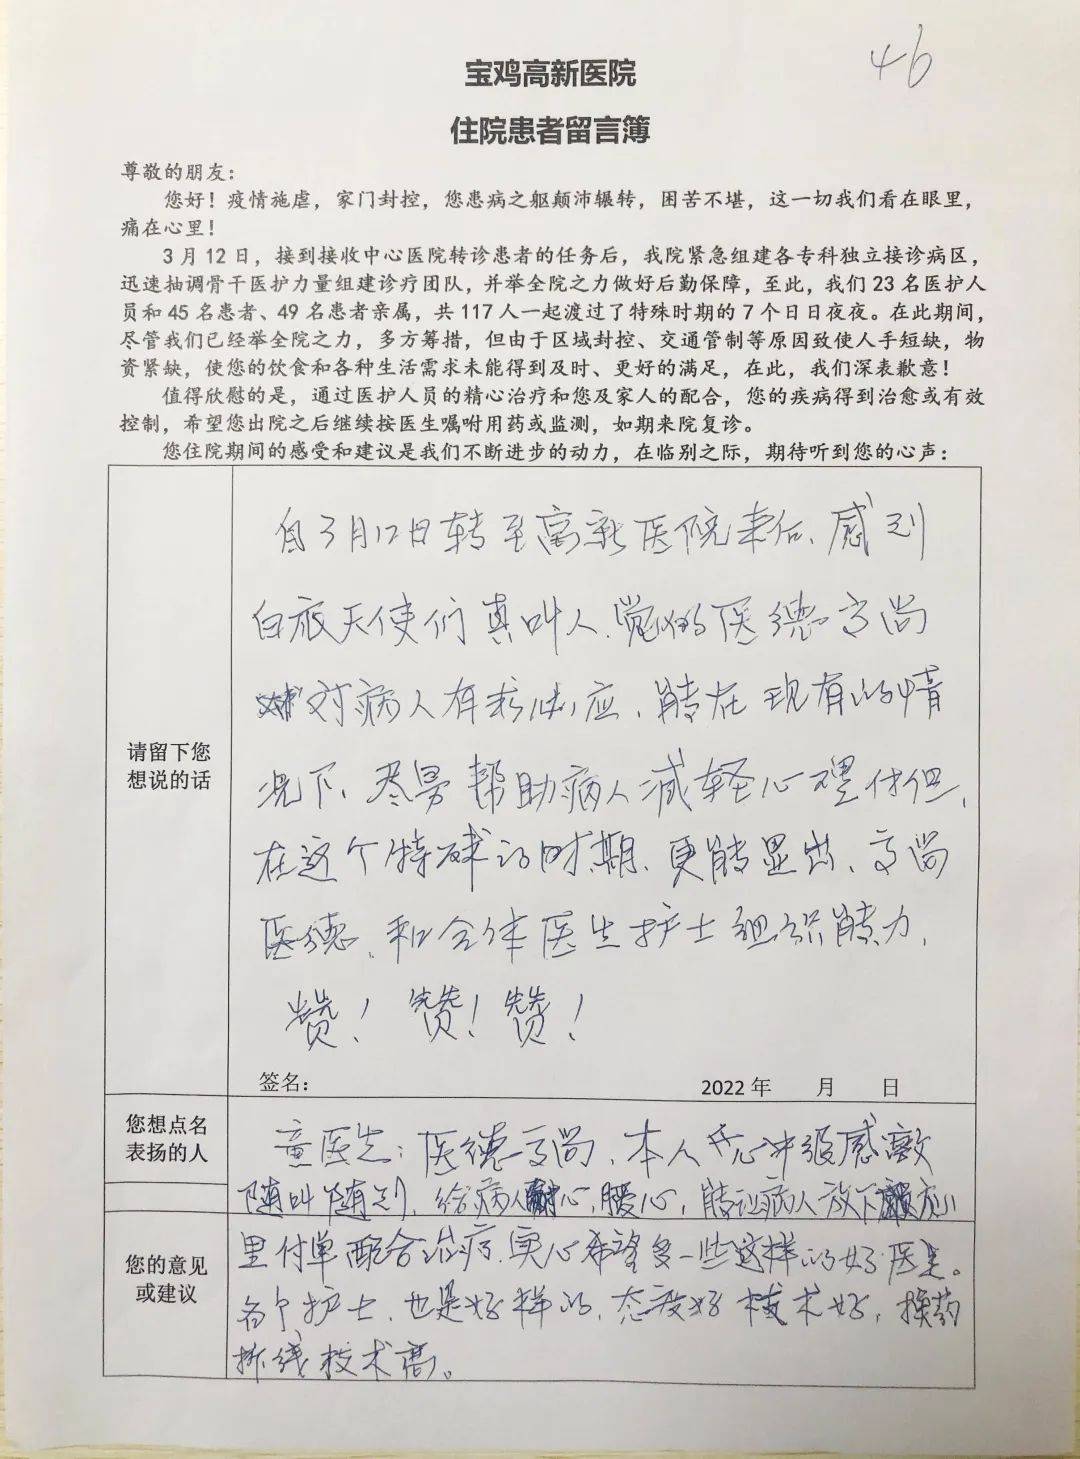 46
宝鸡高新医院
住院患者留言簿
尊敬的朋友：
您好！疫情施虐，家门封控，您患病之躯颠沛辗转，困苦不堪，这一切我们看在眼里，
痛在心里！
3月12日，接到接收中心医院转诊患者的任务后，我院紧急组建各专科独立接诊病区，
迅速抽调骨干医护力量组建诊疗团队，并举全院之力做好后勤保障，至此，我们23名医护人
员和45名患者、49名患者亲属，共117人一起渡过了特殊时期的7个日日夜夜。在此期间，
尽管我们已经举全院之力，多方筹措，但由于区域封控、交通管制等原因致使人手短缺，物
资紧缺，使您的饮食和各种生活需求未能得到及时、更好的满足，在此，我们深表歉意！
值得欣慰的是，通过医护人员的精心治疗和您及家人的配合，您的疾病得到治愈或有效
控制，希望您出院之后继续按医生嘱咐用药或监测，如期来院复诊。
您住院期间的感受和建议是我们不断进步的动力，在临别之际，期待听到您的心声：
请留下您
想说的话
自3月12日转至高新医院来后、感到
白衣天使们真叫人、觉的医德高尚
对病人有求必应、能在现有的情
况下、尽量帮助病人减轻心理付但，
在这个特殊的时期、更能显出、高尚
医德、和全体医生护士组织能力，
赞！赞！赞！
签名：
2022年 月 日
您想点名
表扬的人
童医生：医德高尚、本人内心冲很感激
随叫随到，给病人耐心，暖心，能让病人放下心
您的意见
或建议
里付单配合治疗，实心希望多一些这样的好医生。
各个护士、也是好样的、态度好 技术好，换药
拆线技术高。